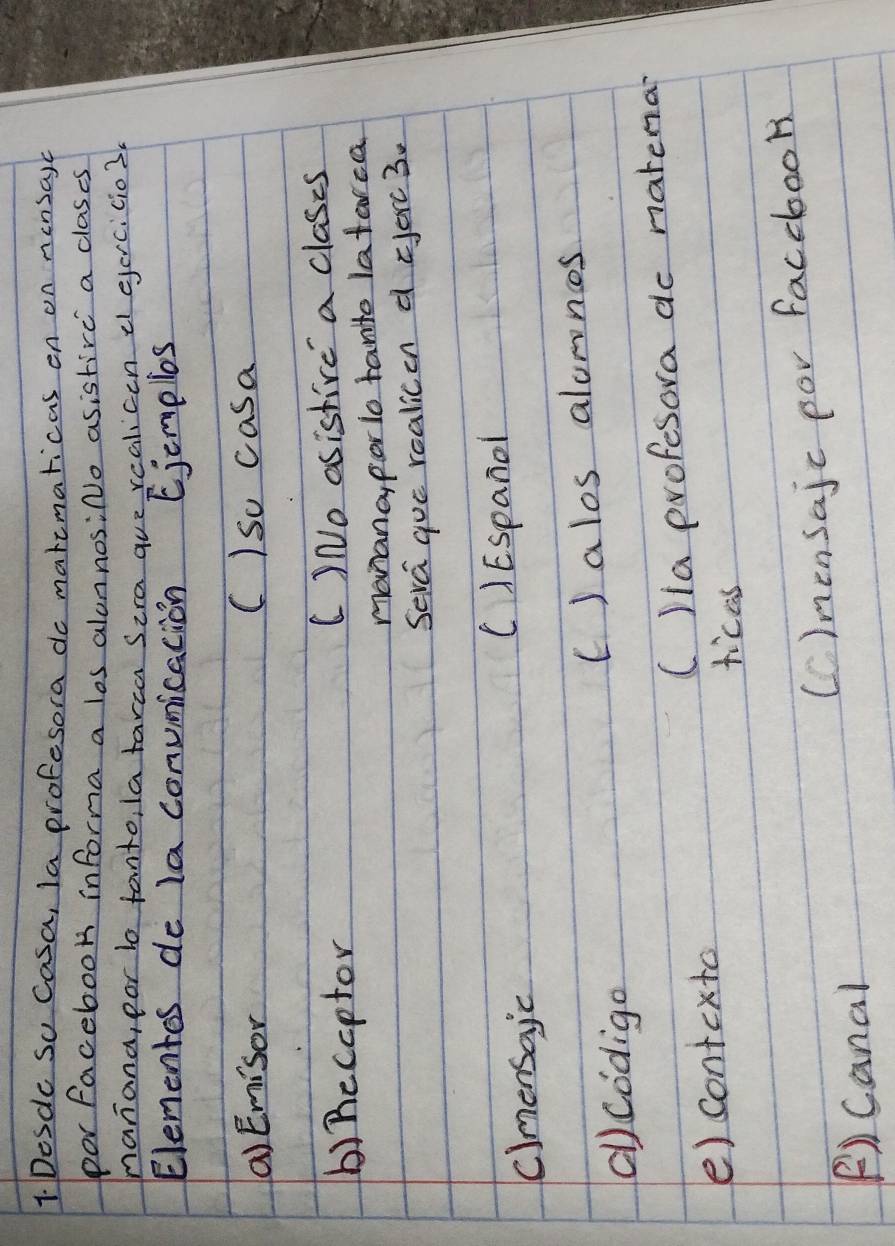 1. Desde su casa, la profesora de matematicas en un mensaje
por facebook informa a los alumnos: No asistiré a clases
mañana, por lo tanto, la tarea sera que realicen el ejercicio 3.
Elementos de la comunicación Ejemplos
a) Emisor ( ) su casa
b) Receptor ( ) No asistiré a clases
mañana, por lo tanto la tarea
Será que realicen el ejerc 3.
c) mensaje ( ) Español
d) código ( ) a los alumnos
e) contexto ( ) la profesora de matema-
ticas
F) Canal (C) mensaje por facebook